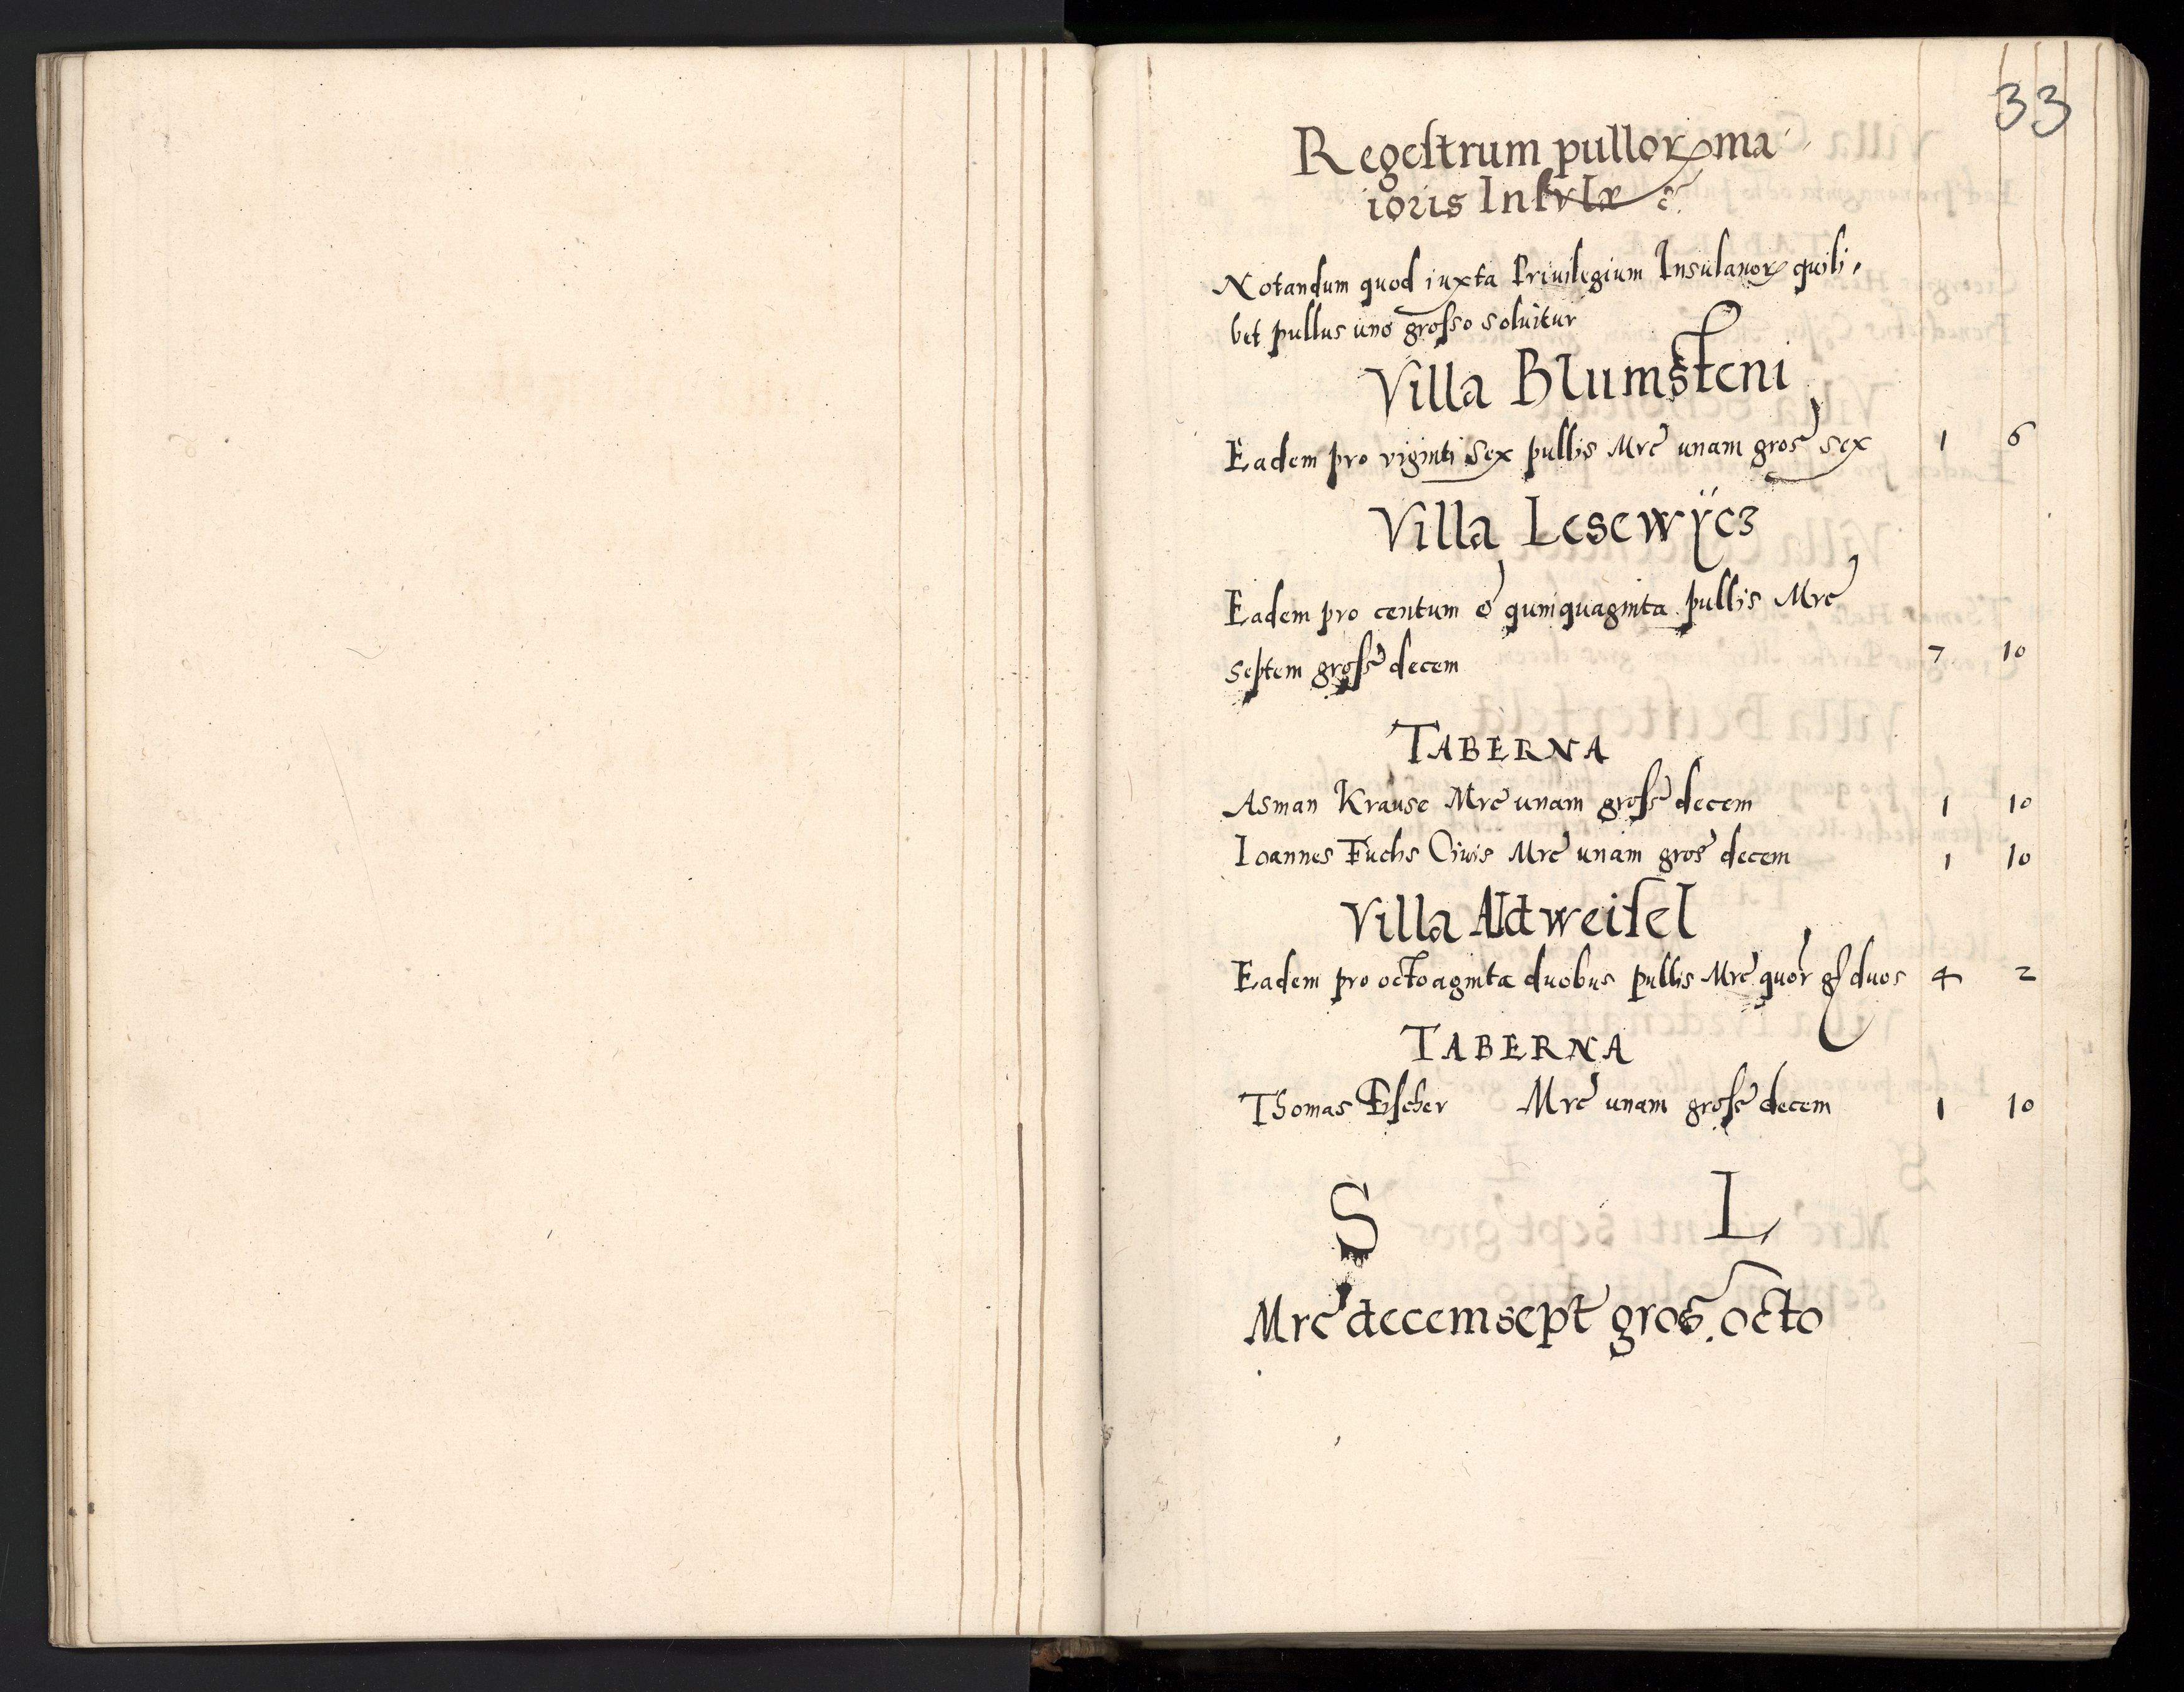 33
Regestrum pulloꝝ ma
ioris Insvlæ &c.
Notandum quod iuxta Priuilegium Insulanoꝝ quili,
bet pullus uno grosso soluitur
Villa Blumsteni
Eadem pro viginti sex pullis Mrc unam gros sex 1 6
Villa Lesewÿcz
Eadem pro centum & quinquaginta pullis Mrc
septem gross decem 7 10
TABERNA
Asman Krause Mrc unam gross decem 1 10
Ioannes Fuchs Ciuis Mrc unam gros decem 1 10
Villa Aldweisel
Eadem pro octoaginta duobus pullis Mrc quor gs duos 4 2
TABERNA
Thomas Fischer Mrc unam gross decem 1 10
S L
Mrc decemsept gros. octo